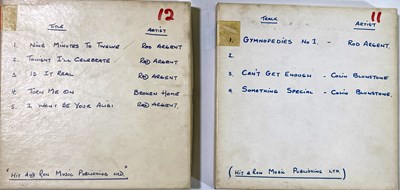 12
TITLE ARTIST
1. NINE MINUTES TO TWELVE ROD ARGENT
2. TONIGHT I'LL CELEBRATE ROD ARGENT
3. IS IT REAL ROD ARGENT
4. TURN ME ON BROKEN HOME
5. I WANT BE YOUR ALIBI ROD ARGENT.
"HIT AND RUN MUSIC PUBLISHING LTD."
11
TRACK ARTIST
1. GYMNOPEDIES No 1. - ROD ARGENT.
2.
3. CAN'T GET ENOUGH - COLIN BLUNSTONE
4. SOMETHING SPECIAL - COLIN BLUNSTONE.
(HIT & RUN MUSIC PUBLISHING LTD.)